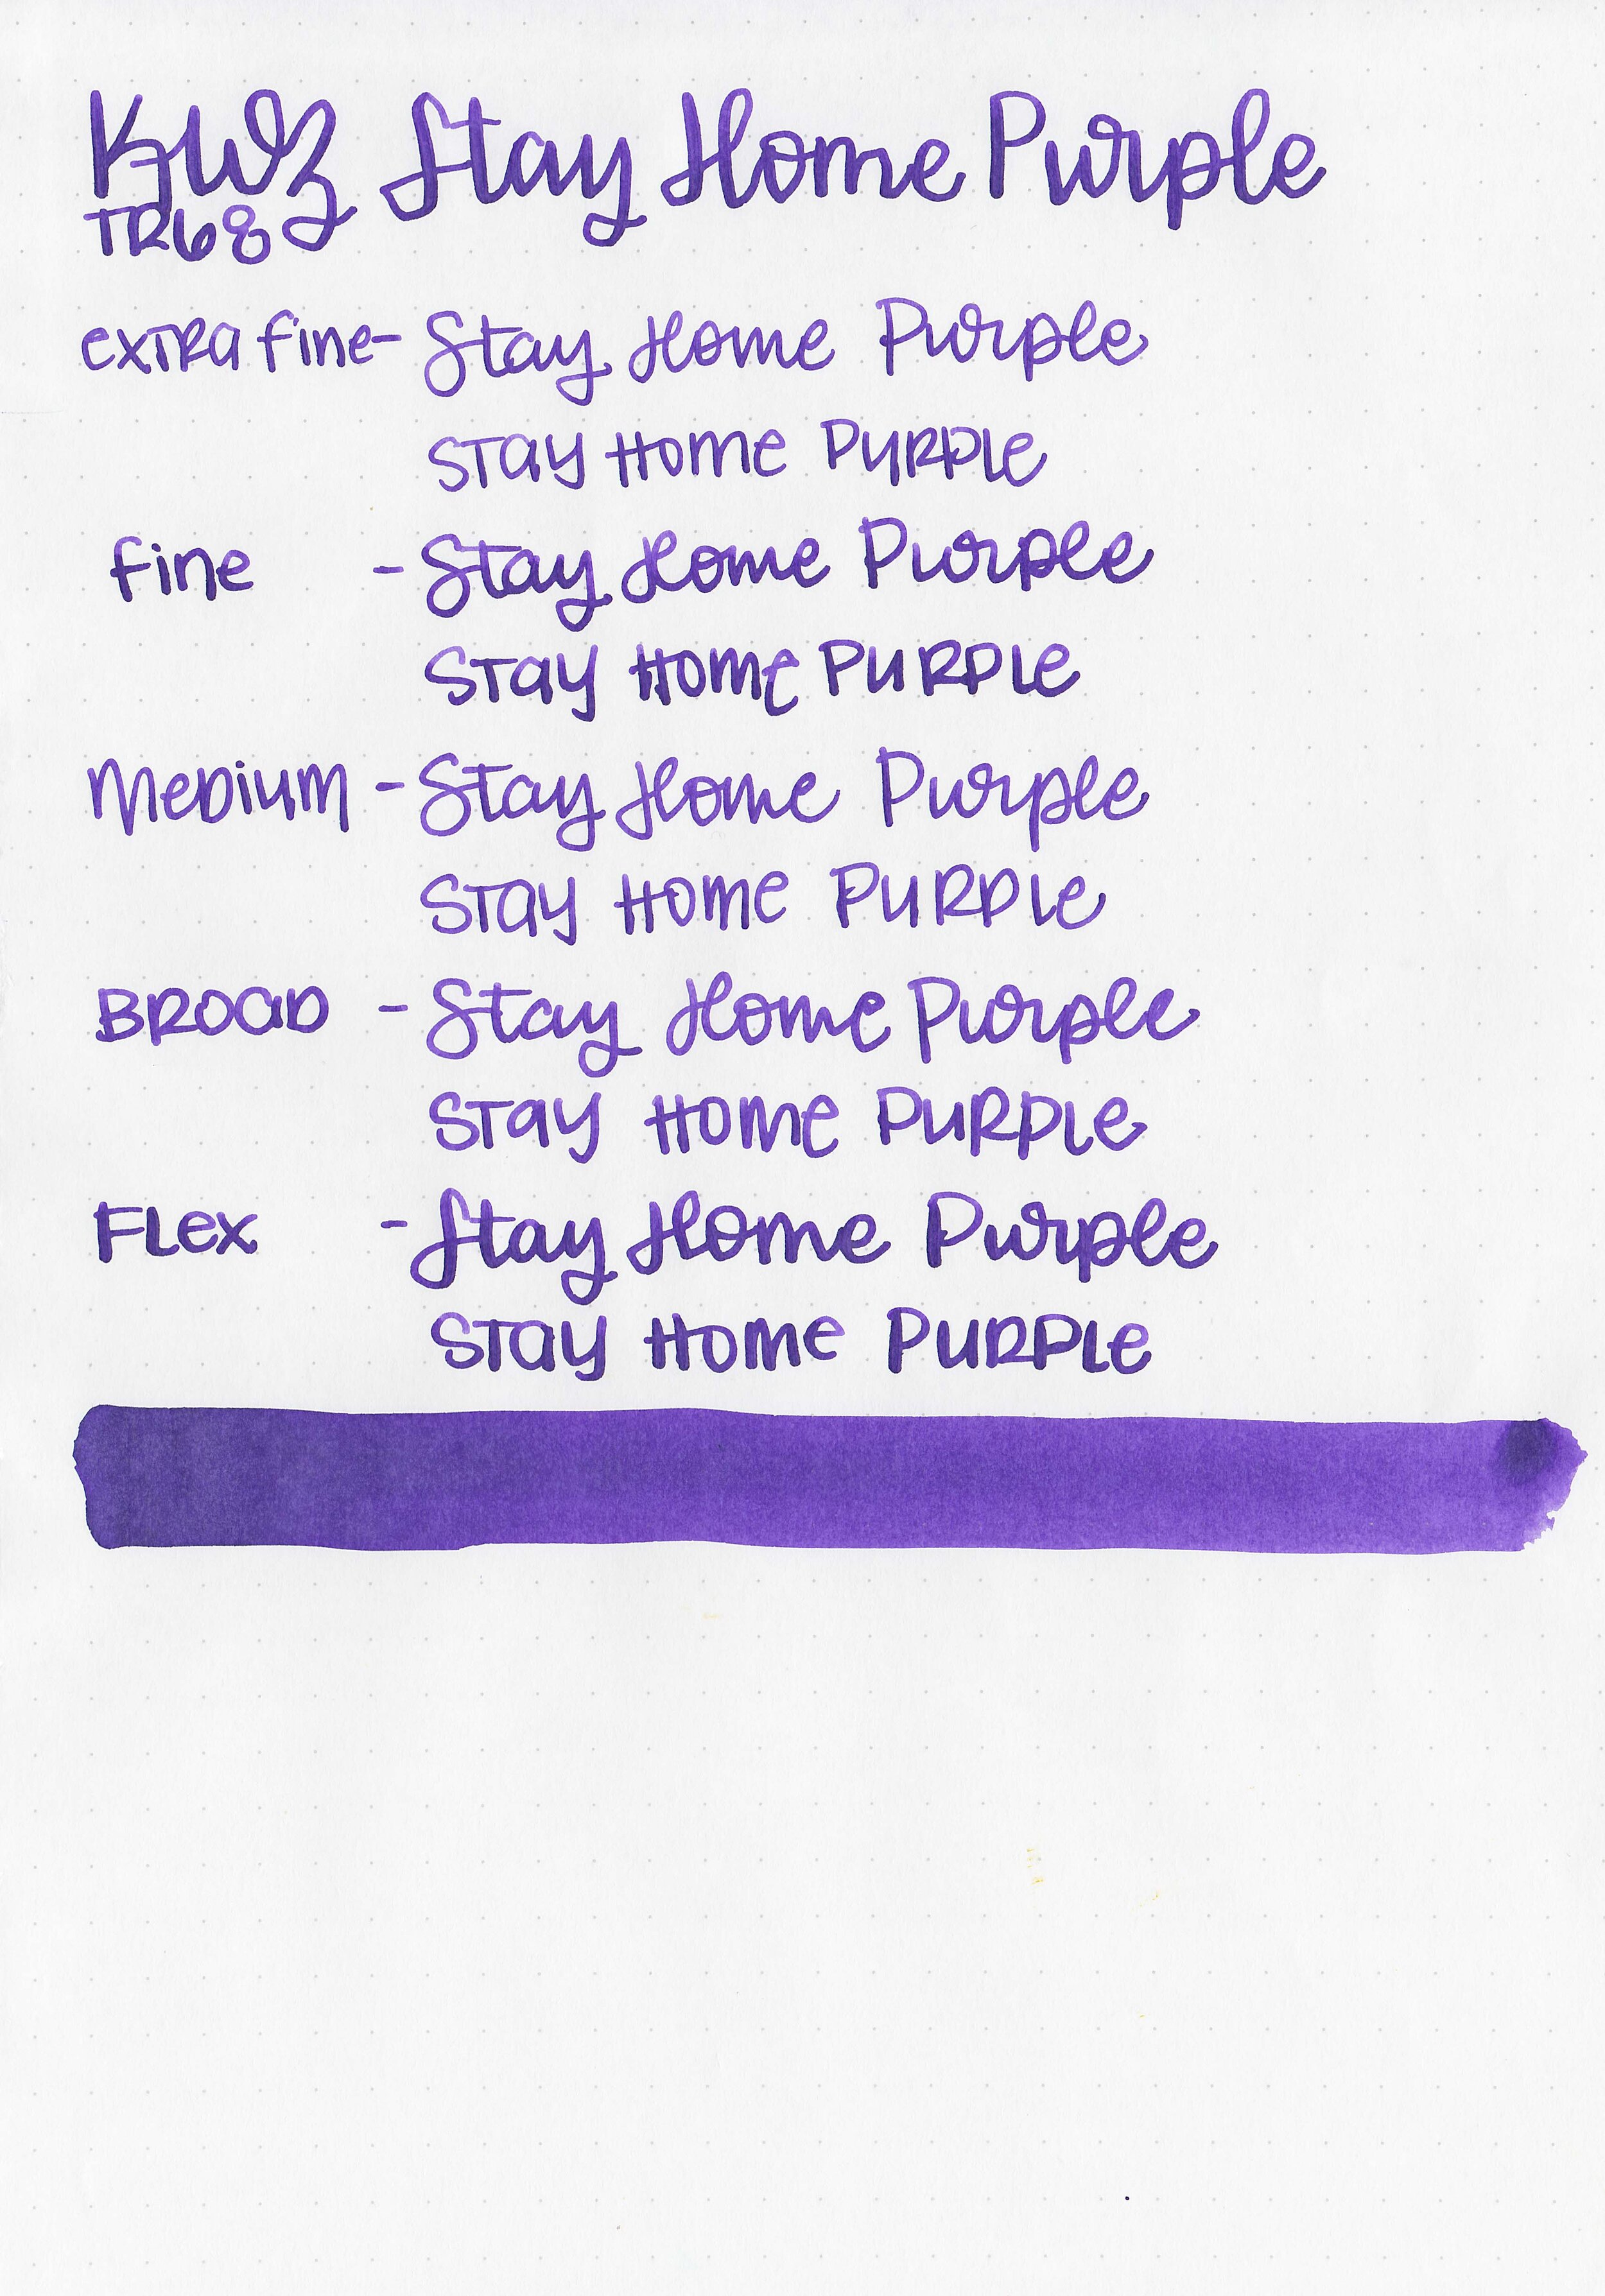 KWZ Stay Home Purple
TR68
extra fine - Stay Home Purple
Stay Home Purple
fine - Stay Home Purple
Stay Home Purple
Medium - Stay Home Purple
Stay Home Purple
Broad - Stay Home Purple
Stay Home Purple
Flex - Stay Home Purple
Stay Home Purple